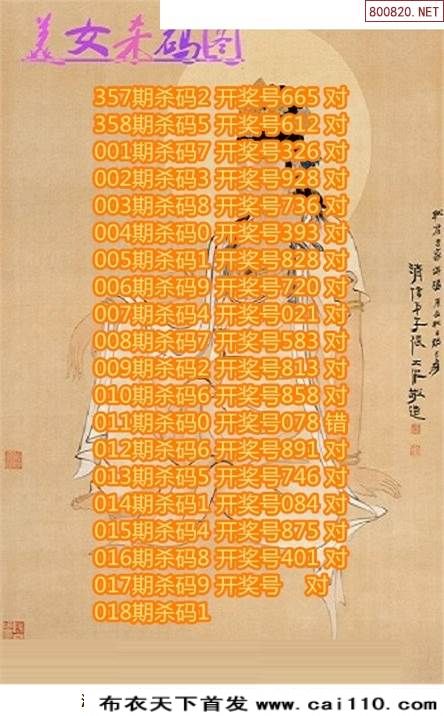 800820.NET
美女杀码图
357期杀码2 开奖号665 对
358期杀码5 开奖号612 对
001期杀码7 开奖号326 对
002期杀码3 开奖号928 对
003期杀码8 开奖号736 对
004期杀码0 开奖号393 对
005期杀码1 开奖号828 对
006期杀码9 开奖号720 对
007期杀码4 开奖号021 对
008期杀码7 开奖号583 对
009期杀码2 开奖号813 对
010期杀码6 开奖号858 对
011期杀码0 开奖号078 错
012期杀码6 开奖号891 对
013期杀码5 开奖号746 对
014期杀码1 开奖号084 对
015期杀码4 开奖号875 对
016期杀码8 开奖号401 对
017期杀码9 开奖号 对
018期杀码1
布衣天下首发 www.cai110.com